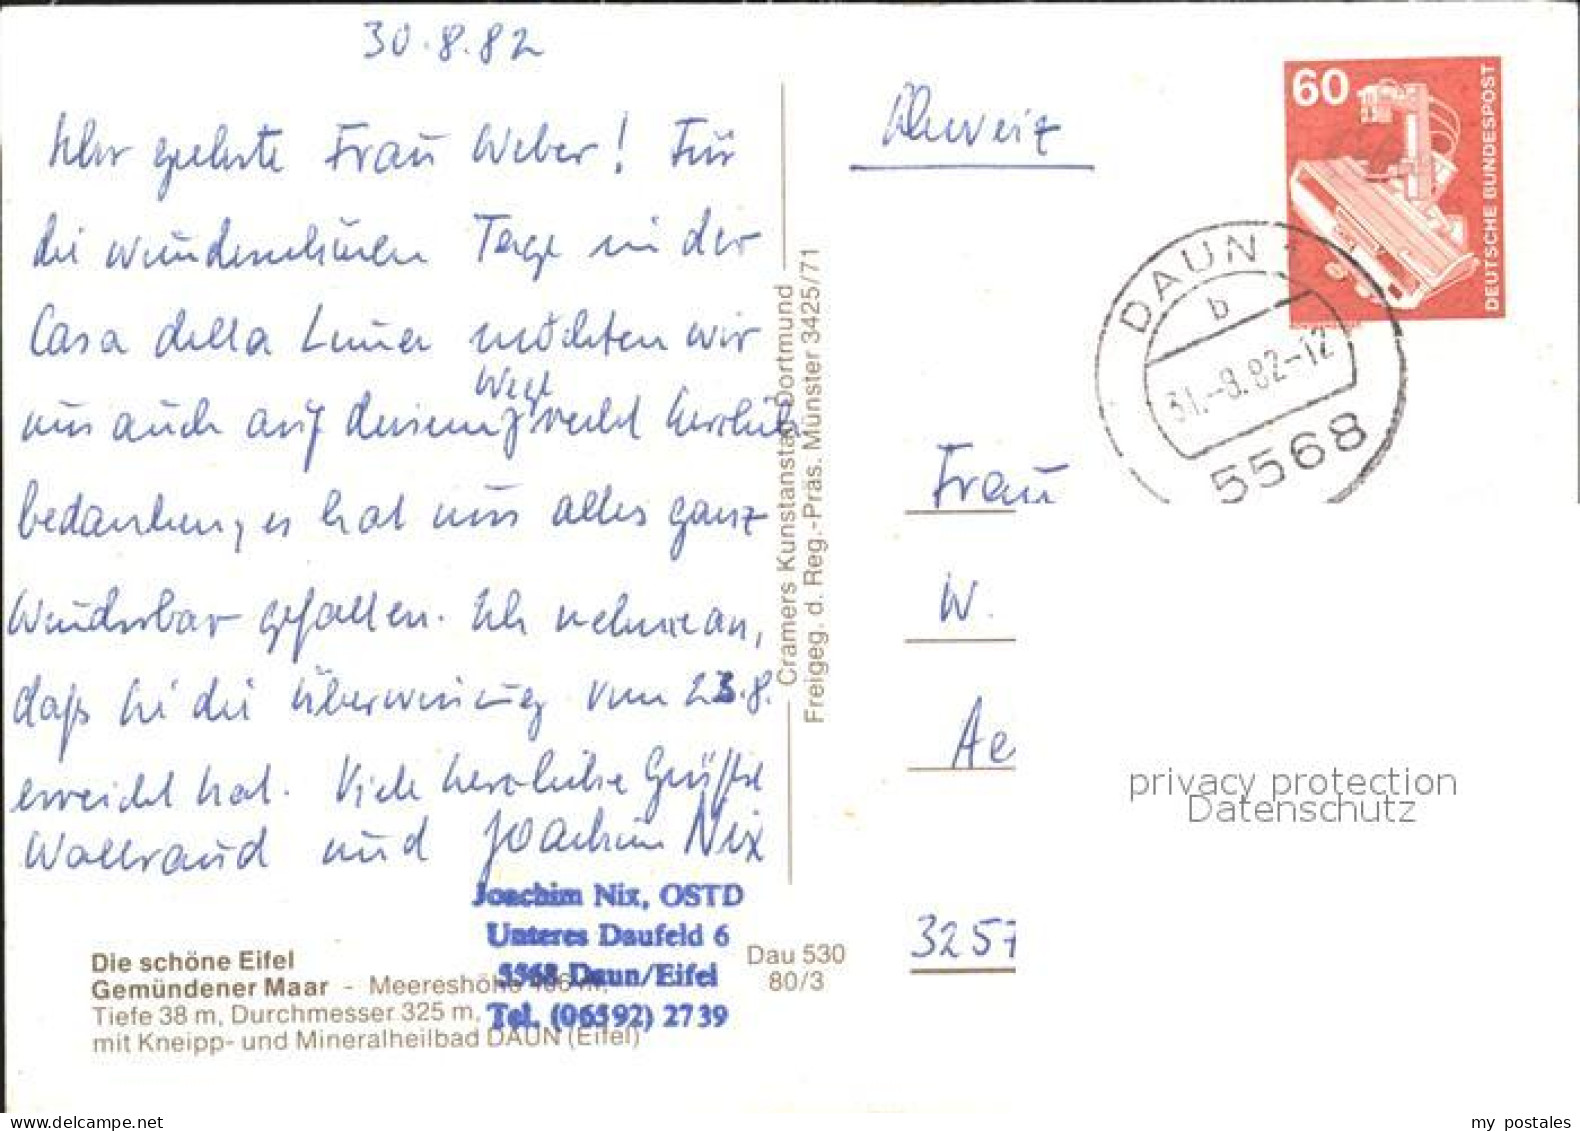 30.8.82
Sehr geehrte Frau Weber! Für
die wunderschönen Tage in der
Casa della Luna möchten wir
uns auch auf diesem Wege recht herzlich
bedanken, es hat uns alles ganz
wunderbar gefallen. Ich nehme an,
daß Sie die Überweisung vom 23.8.
erreicht hat. Viele herzliche Grüße
Waltraud und Joachim Nix
Joachim Nix, OSTD
Unteres Daufeld 6
5568 Daun/Eifel
Tel. (06592) 2739
Die schöne Eifel
Gemündener Maar - Meereshöhe 406 m,
Tiefe 38 m, Durchmesser 325 m,
mit Kneipp- und Mineralheilbad DAUN (Eifel)
Dau 530
80/3
Cramers Kunstanstalt Dortmund
Freigeg. d. Reg.-Präs. Münster 3425/71
Schweiz
60
DEUTSCHE BUNDESPOST
DAUN 1
b
31.-8.82-12
5568
Frau
W.
Ae
3257
privacy protection
Datenschutz
my postales